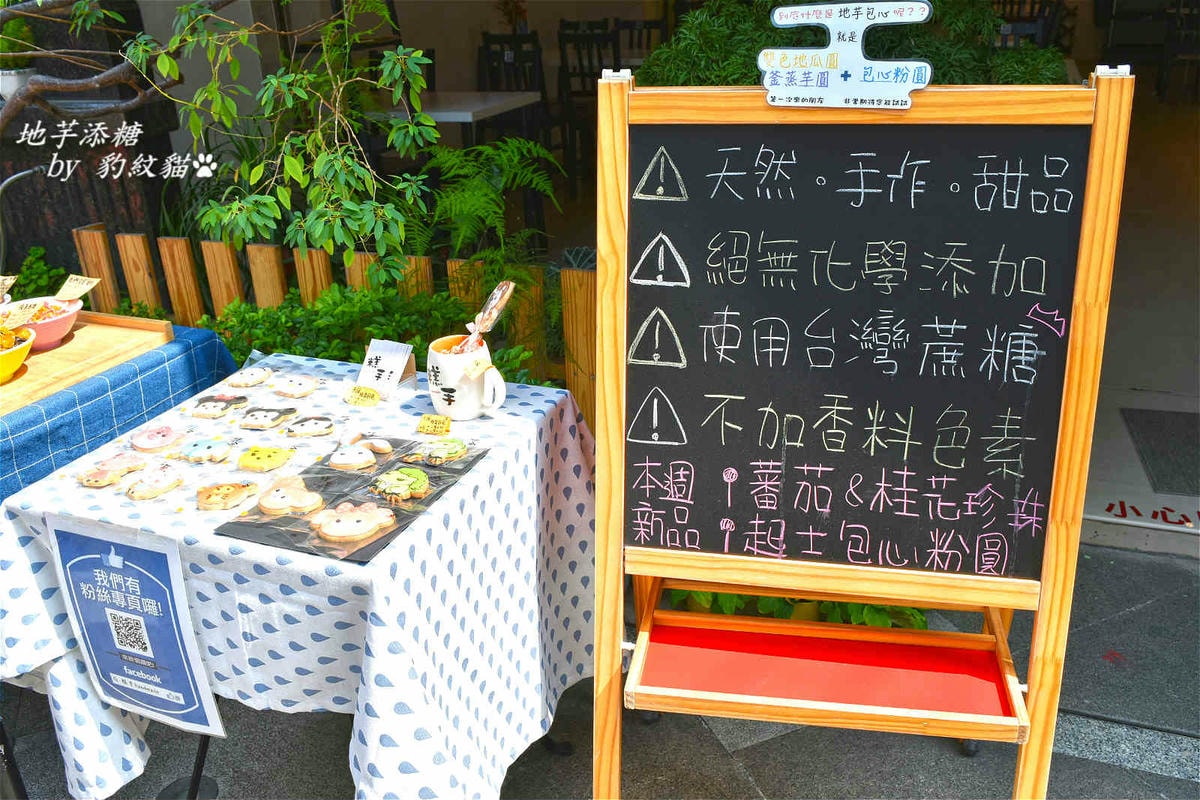 地芋添糖
by 豹紋貓
到底什麼是地芋包心呢??
就是
雙色地瓜圓
釜蒸芋圓 + 包心粉圓
第一次來的朋友 非常期待您能試試
天然。手作。甜品
絕無化學添加
使用台灣蔗糖
不加香料色素
本週 蕃茄&桂花珍珠
新品 起士包心粉圓
我們有
粉絲專頁囉!
facebook
小心